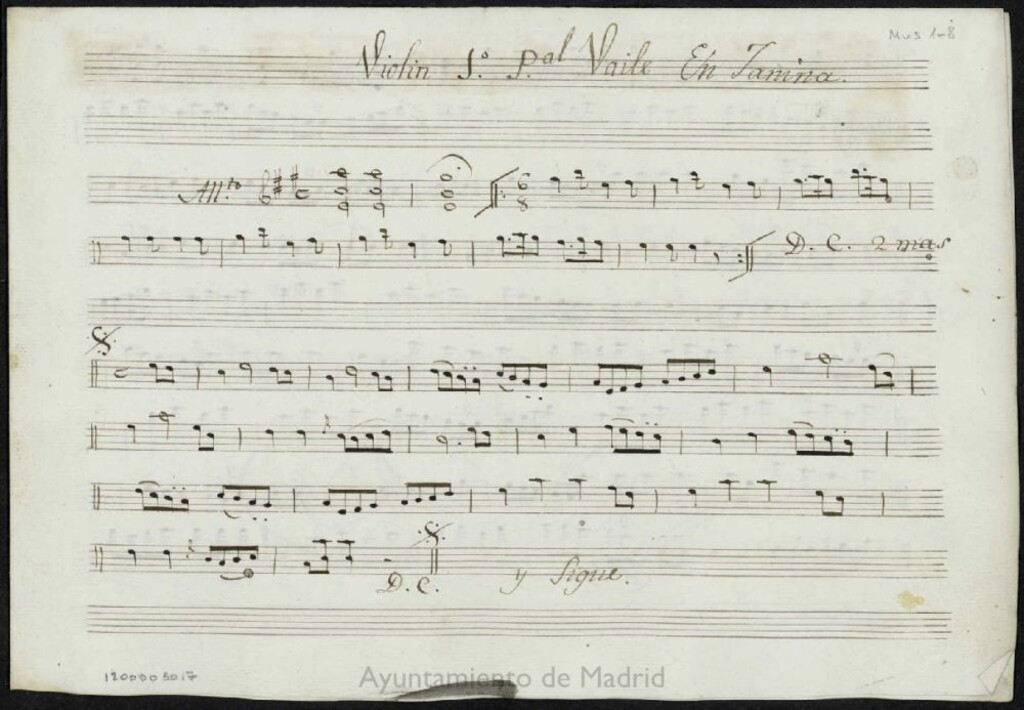 Mus 1-8
Violin 1º. P.al Vaile En Janina.
All.to 6 8
D. C. 2 mas
D. C. y Sigue.
1200005017
Ayuntamiento de Madrid